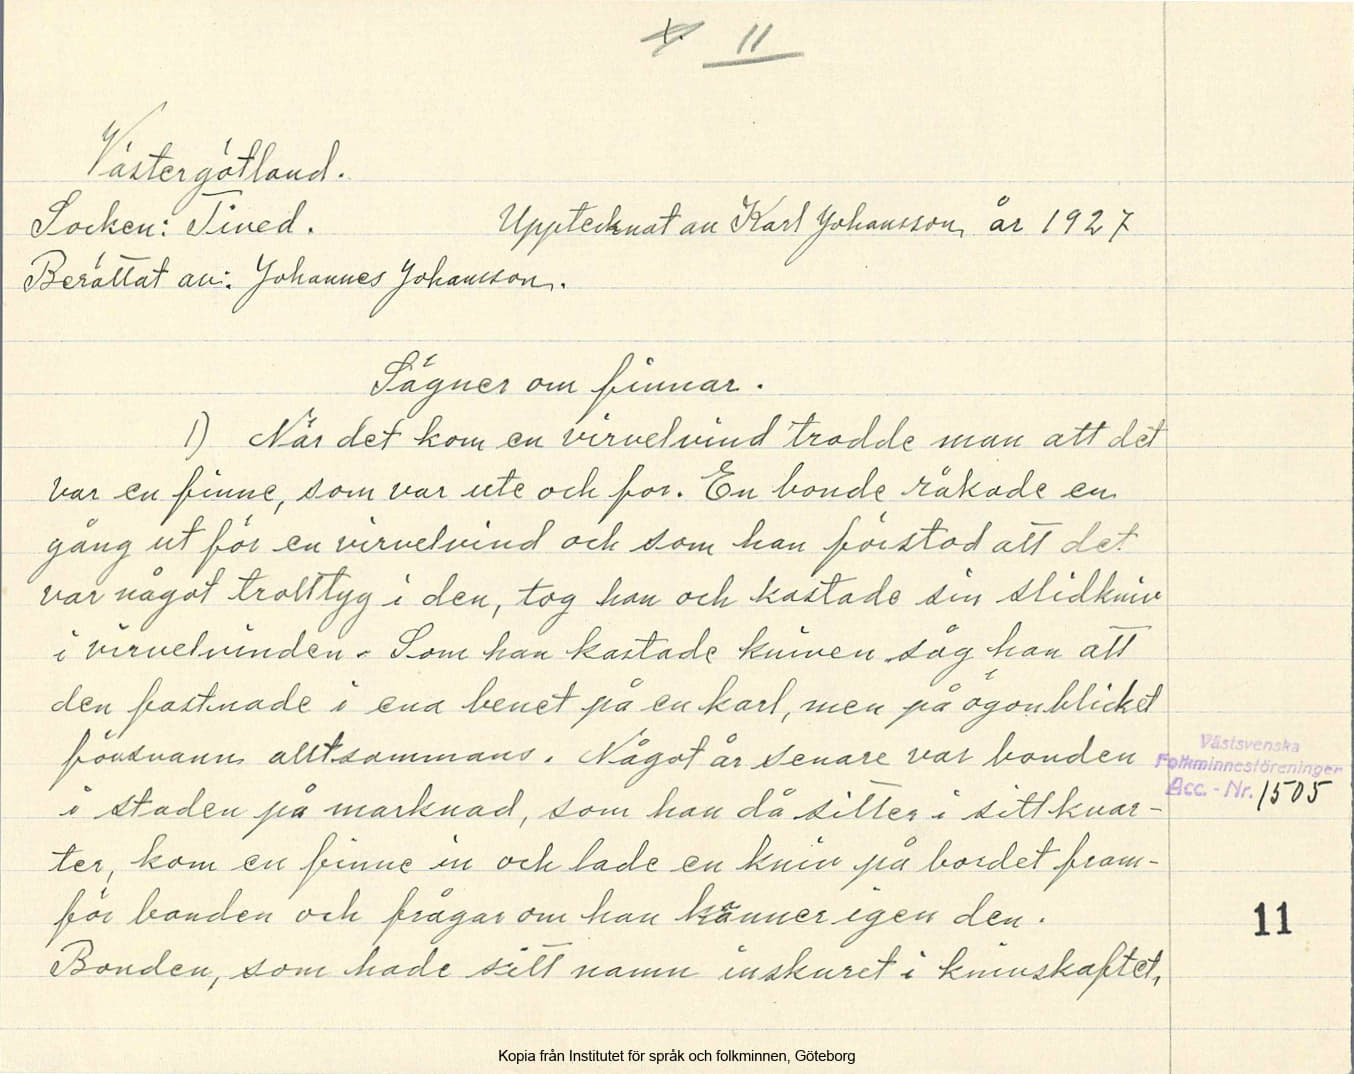 11
Västergötland.
Socken: Tived. Upptecknat av Karl Johansson, år 1927
Berättat av: Johannes Johansson.
Sägner om finnar.
1) När det kom en virvelvind trodde man att det
var en finne, som var ute och for. En bonde råkade en
gång ut för en virvelvind och som han förstod att det
var något trolltyg i den, tog han och kastade sin slidkniv
i virvelvinden. Som han kastade kniven såg han att
den fastnade i ena benet på en karl, men på ögonblicket
försvann alltsammans. Något år senare var bonden
i staden på marknad, som han då sitter i sitt kvar-
ter, kom en finne in och lade en kniv på bordet fram-
för bonden och frågar om han känner igen den.
Bonden, som hade sitt namn inskuret i knivskaftet,
Västsvenska
Folkminnesföreningen
Acc.-Nr. 1505
11
Kopia från Institutet för språk och folkminnen, Göteborg